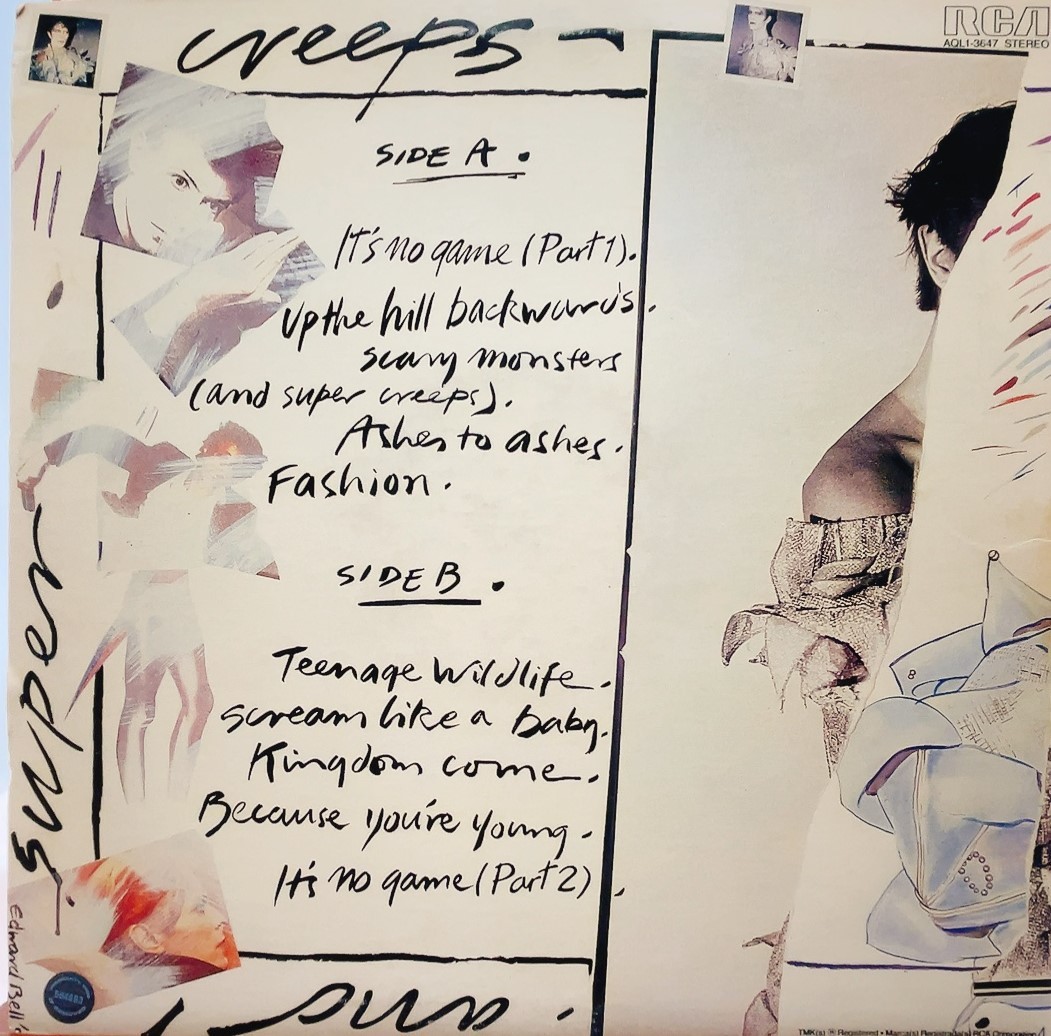 creeps
RCA
AQL1-3647 STEREO
SIDE A.
It's no game (Part 1).
Up the hill backwards.
scary monsters
(and super creeps).
Ashes to ashes.
Fashion.
SIDE B.
Teenage Wildlife.
scream like a baby.
Kingdom come.
Because you're young.
It's no game (Part 2).
super
Edward Bell
TMK(s) ® Registered • Marca(s) Registrada(s) RCA Corporation